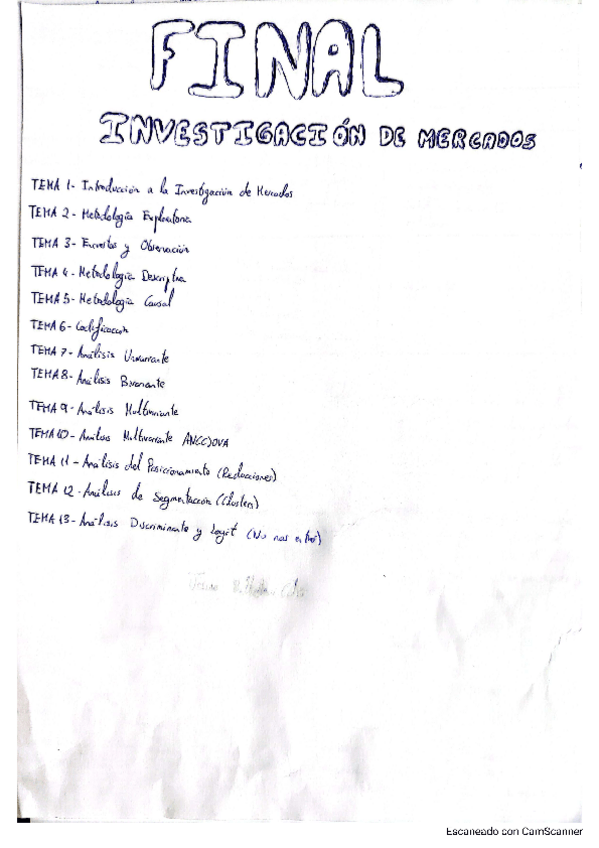 FINAL
INVESTIGACIÓN DE MERCADOS
TEMA 1- Introducción a la Investigación de Mercados
TEMA 2- Metodología Exploratoria
TEMA 3- Encuestas y Observación
TEMA 4- Metodología Descriptiva
TEMA 5- Metodología Causal
TEMA 6- Codificación
TEMA 7- Análisis Univariante
TEMA 8- Análisis Bivariante
TEMA 9- Análisis Multivariante
TEMA 10- Análisis Multivariante AN(C)OVA
TEMA 11- Análisis del Posicionamiento (Reducciones)
TEMA 12- Análisis de Segmentación (Cluster)
TEMA 13- Análisis Discriminante y Logit (No nos entró)
Escaneado con CamScanner